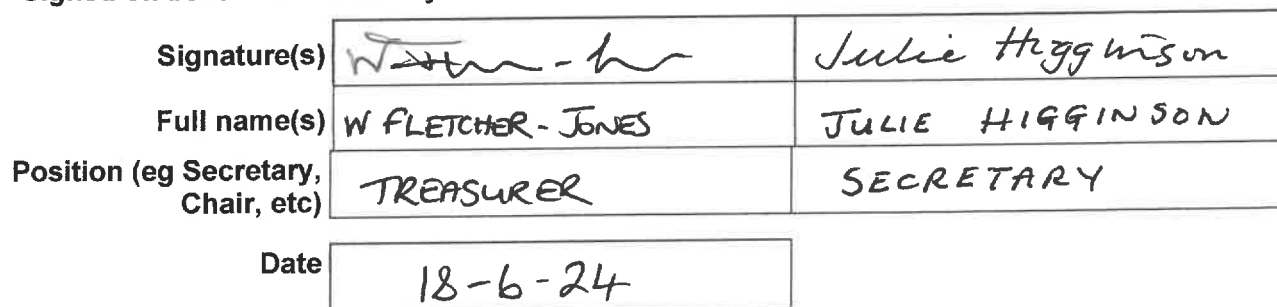 Signature(s) Julie Higginson
Full name(s) W FLETCHER-JONES JULIE HIGGINSON
Position (eg Secretary, Chair, etc) TREASURER SECRETARY
Date 18-6-24